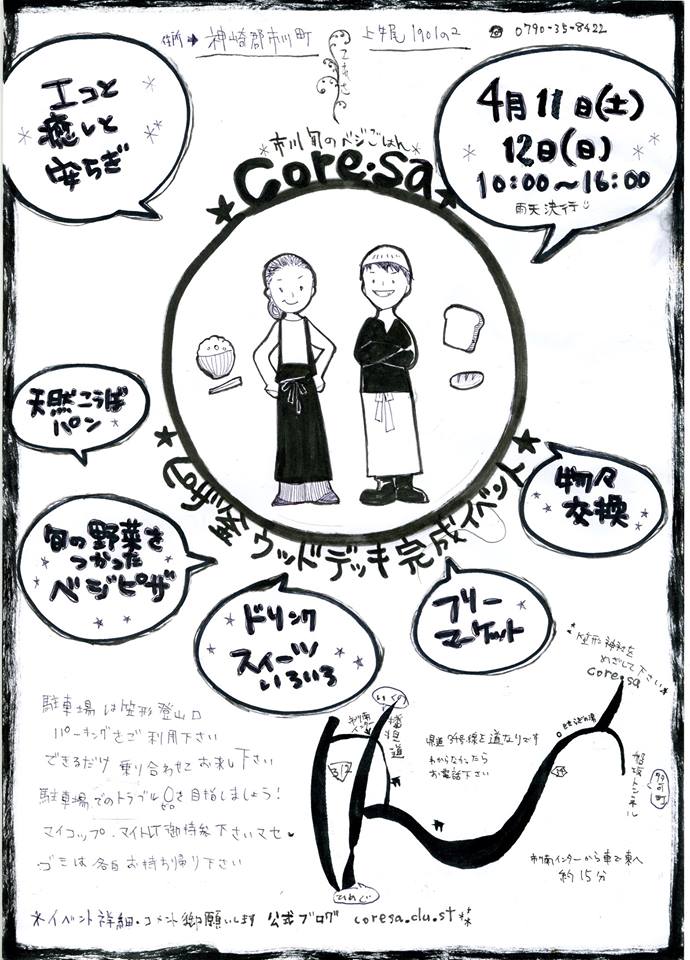 住所→ 神崎郡市川町 上牛尾1901の2 ☎ 0790-35-8422
こぅさ
エコと
癒しと
安らぎ
4月11日(土)
12日(日)
10:00～16:00
雨天決行
*市川旬のベジごはん*
★Core・sa★
天然こうぼ
パン
★ピザ釜ウッドデッキ完成イベント★
物々
交換
旬の野菜を
つかった
ベジピザ
ドリンク
スイーツ
いろいろ
フリー
マーケット
笠形神社を
めざして下さい
core・sa
駐車場は笠形登山口
パーキングをご利用下さい
できるだけ乗り合わせでお来し下さい
駐車場でのトラブル0を目指しましょう!
ゼロ
マイコップ・マイトレイ御持参下さいマセ♥
ゴミは各自お持ち帰り下さい
いくの
市川南
インター
播但道
312
県道34号線を道なりです
わからなかったら
お電話下さい
34
せせらぎの湯
船坂トンネル
多可町
市川南インターから車で東へ
約15分
ひめじ
*イベント詳細・コメント御願いします 公式ブログ coresa.du.st**